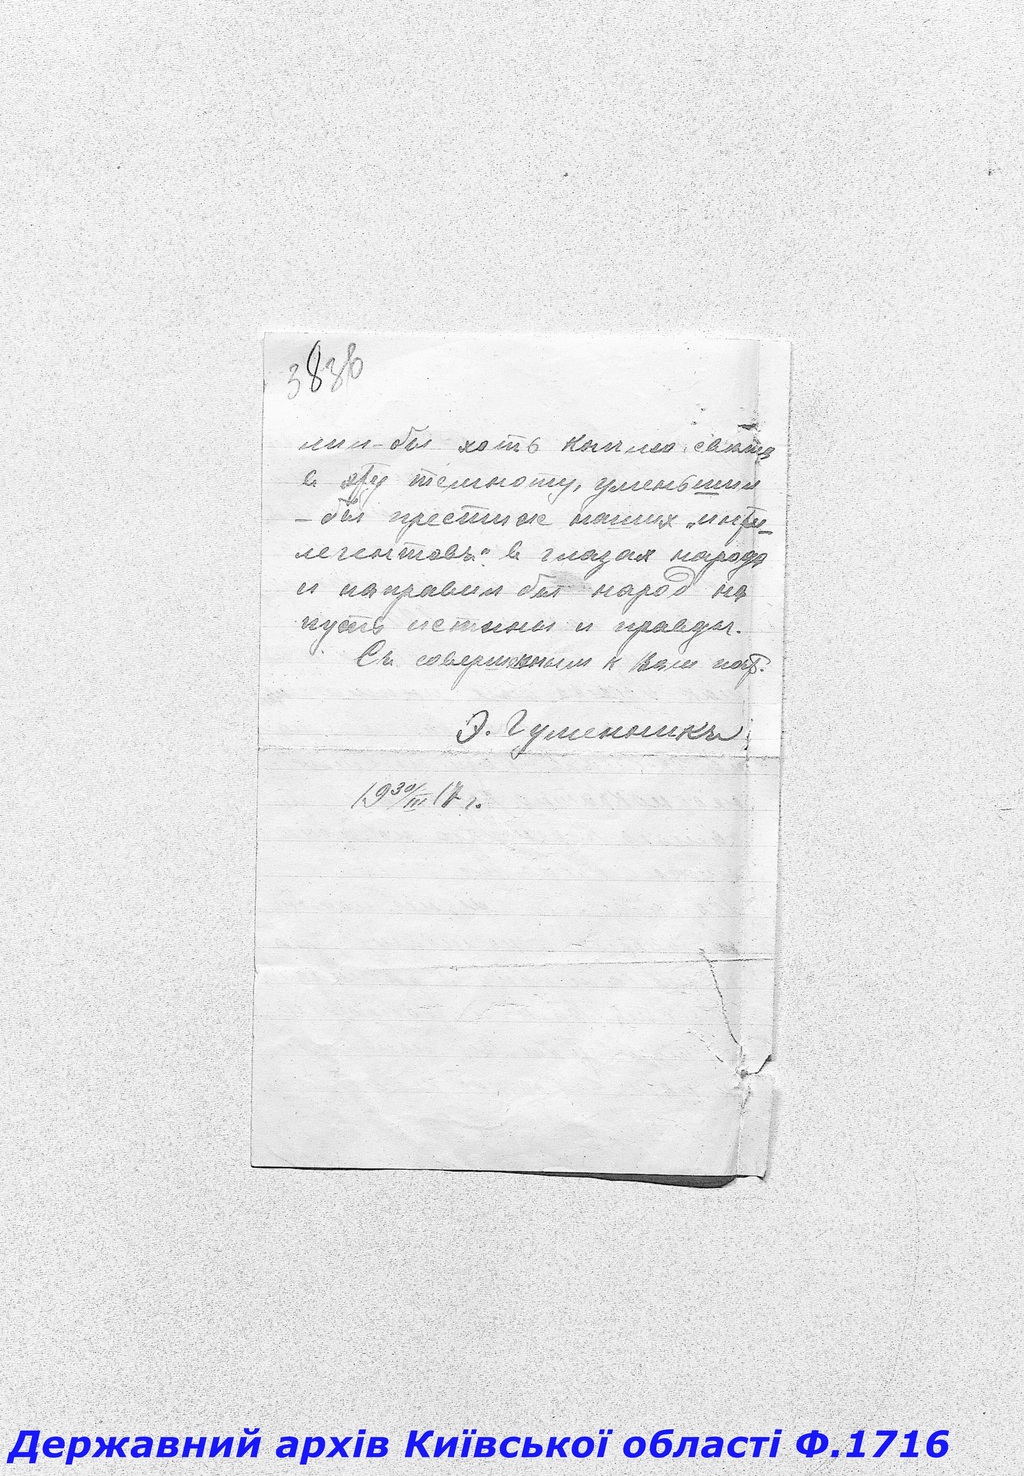 38 38
лии-бы хоть каплю света
в эту темноту, уменьшили
-бы престиж наших „интел-
легентовъ" в глазах народа
и направили бы народ на
путь истины и правды.
Съ совершенным к Вам поч.
Э. Гуменникъ
19 30/III 17 г.
Державний архів Київської області Ф.1716